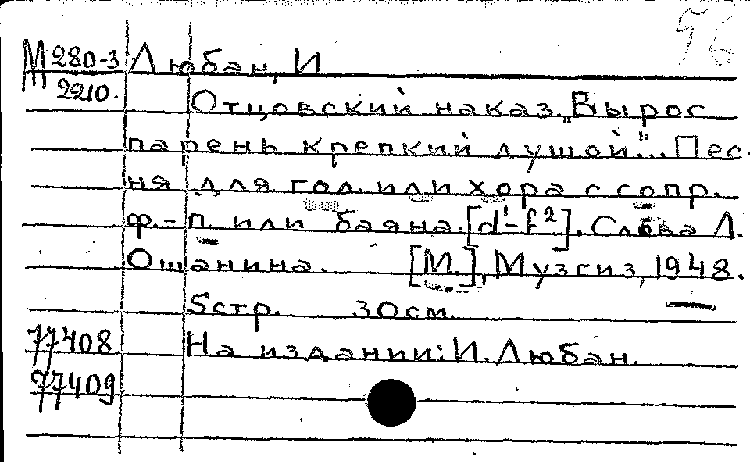 56
М 280-3 Любан, И
2210.
Отцовский наказ. „Вырос
парень крепкий душой"... Пес-
ня для гол. или хора с сопр.
ф.-п. или баяна. [d¹-f²]. Слова Л.
Ошанина. [М.], Музгиз, 1948.
5 стр. 30 см.
77408 На издании: И. Любан.
77409